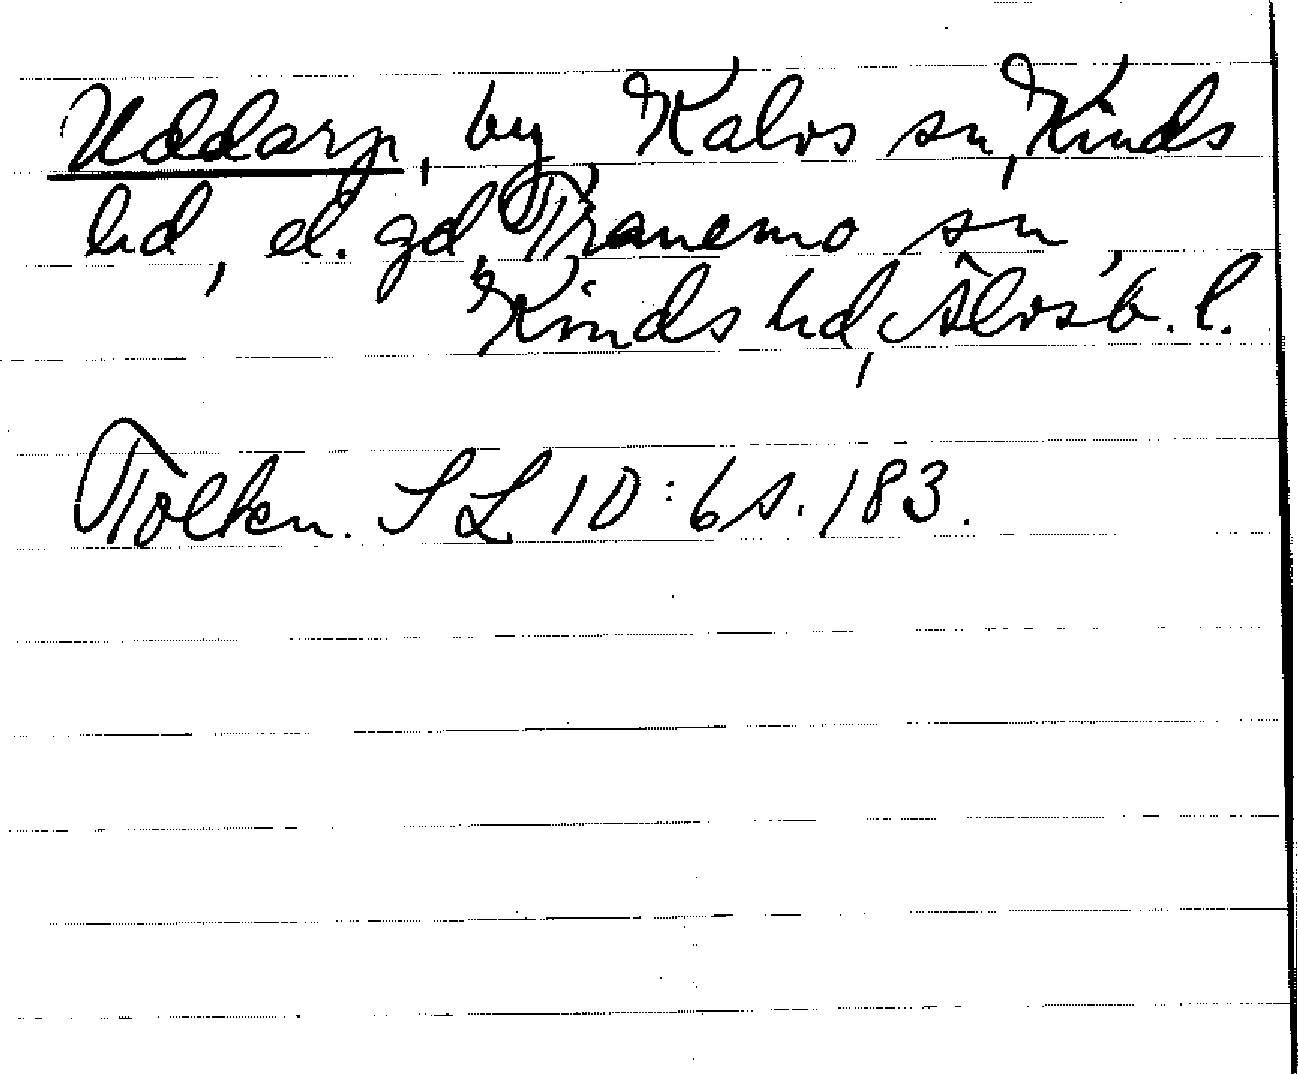 Uddarp, by, Kalvs sn, Kinds
hd, el. gd, Tranemo sn,
Kinds hd, Älvsb. l.
Tolkn. SL 10:6 s. 183.